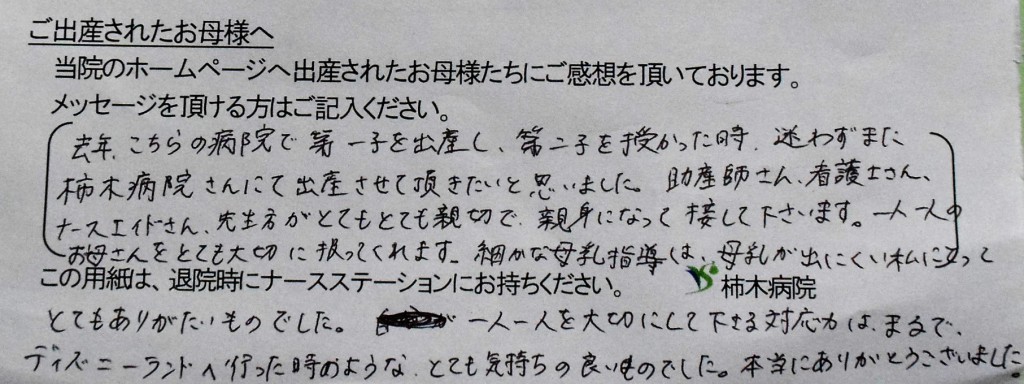 ご出産されたお母様へ
当院のホームページへ出産されたお母様たちにご感想を頂いております。
メッセージを頂ける方はご記入ください。
去年、こちらの病院で第一子を出産し、第二子を授かった時、迷わずまた
柿木病院さんにて出産させて頂きたいと思いました。助産師さん、看護士さん、
ナースエイドさん、先生方がとてもとても親切で、親身になって接して下さいます。一人一人の
お母さんをとても大切に扱ってくれます。細かな母乳指導は、母乳が出にくい私にとって
この用紙は、退院時にナースステーションにお持ちください。 柿木病院
とてもありがたいものでした。 が一人一人を大切にして下さる対応力は、まるで、
ディズニーランドへ行った時のような、とても気持ちの良いものでした。本当にありがとうございました。